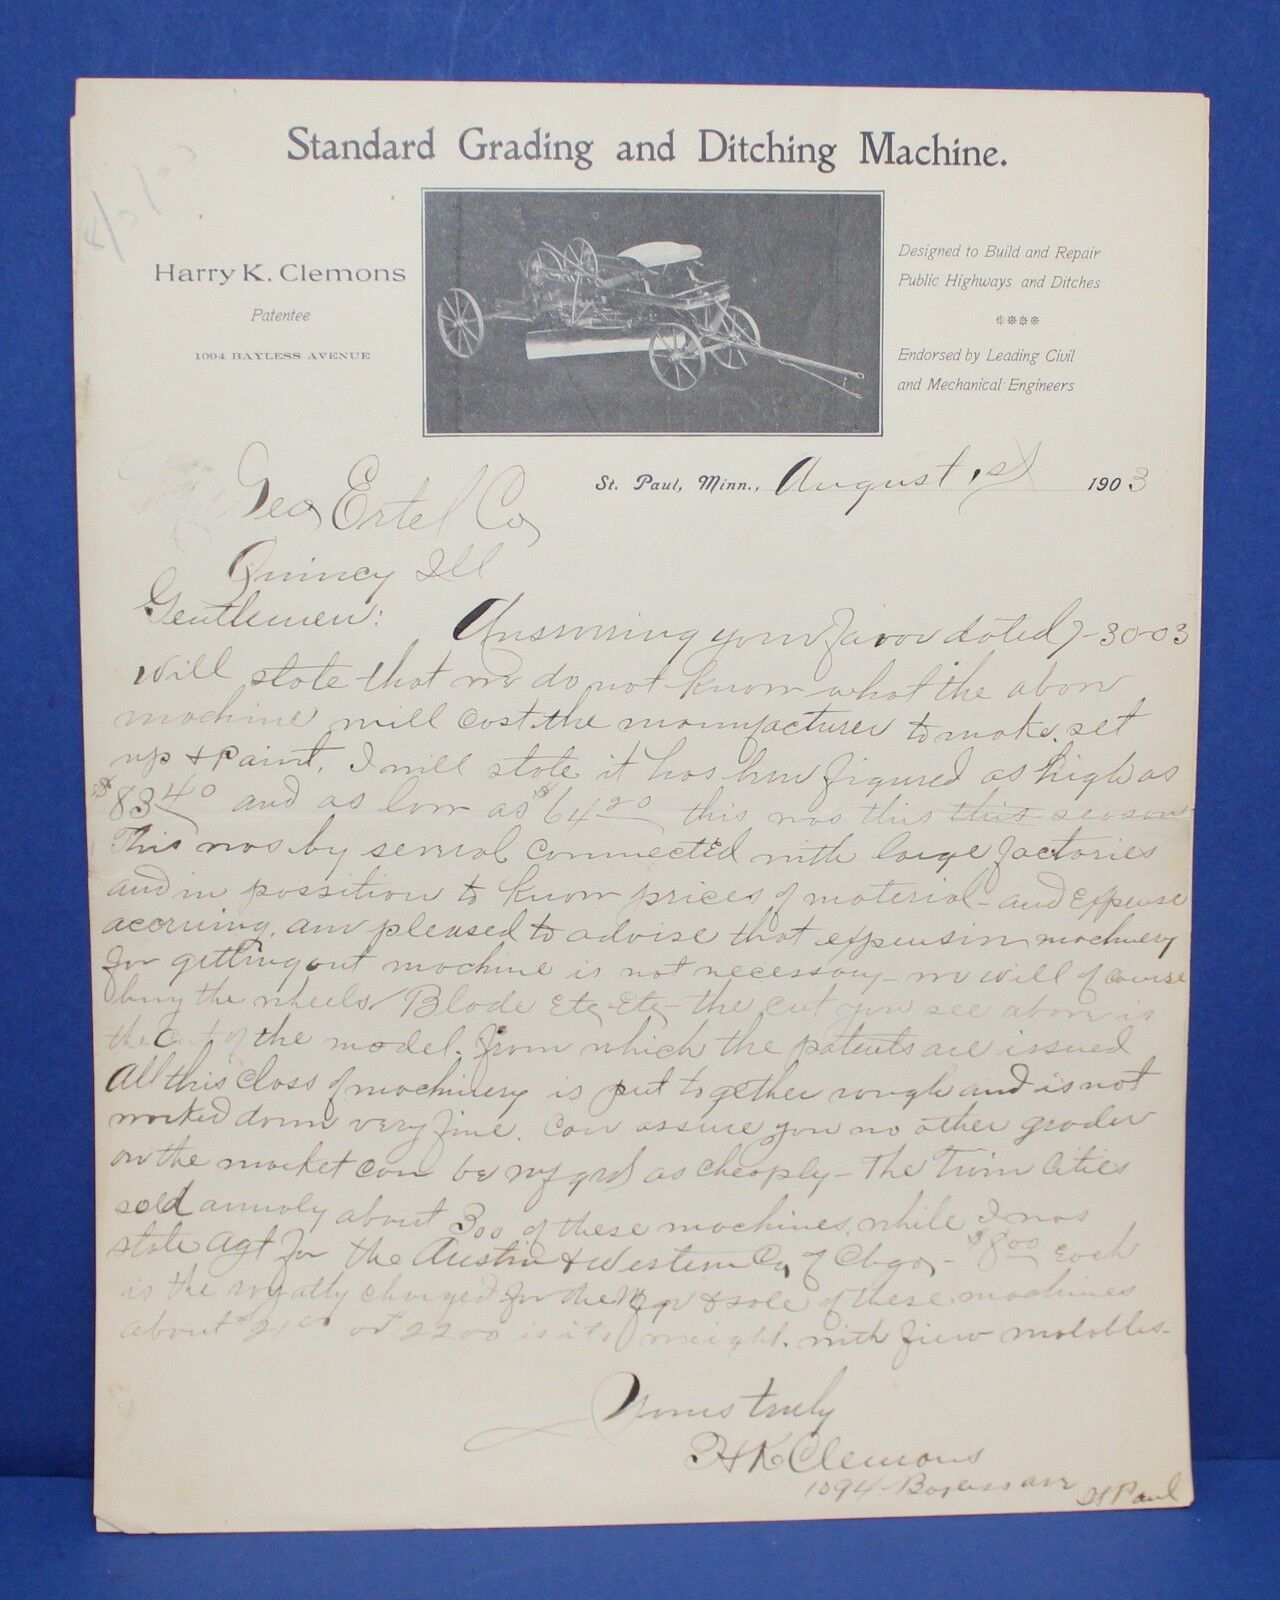 Standard Grading and Ditching Machine.
Harry K. Clemons
Patentee
1094 BAYLESS AVENUE
Designed to Build and Repair
Public Highways and Ditches
Endorsed by Leading Civil
and Mechanical Engineers
St. Paul, Minn., August 1st 1903
Geo Ertel Co,
Quincy Ill
Gentlemen: Answering your favor dated 7-30-03
will state that we do not know what the above
machine will cost the manufacturer to make, set
up & paint, I will state it has been figured as high as
$83 40 and as low as $64 20 this was this this season
This was by several connected with large factories
and in possition to know prices of material - and Expense
accruing. am pleased to advise that expensive machinery
for getting out machine is not necessary - we will of course
buy the wheels, Blade Etc Etc - the cut you see above is
the Cut of the model. from which the patents are issued
All this Class of machinery is put together rough and is not
worked down very fine. Can assure you no other grader
on the market can be mfgrd as cheaply - The Twin Cities
sold annualy about 300 of these machines, while I was
state Agt for the Austin & Western Co, of Chgo, - $8 00 Each
is the royalty charged for the Mfgr & sale of these machines
about 2100 or 2200 is its weight. with few
Yours truly
H K Clemons
1094 - Bayless ave St Paul